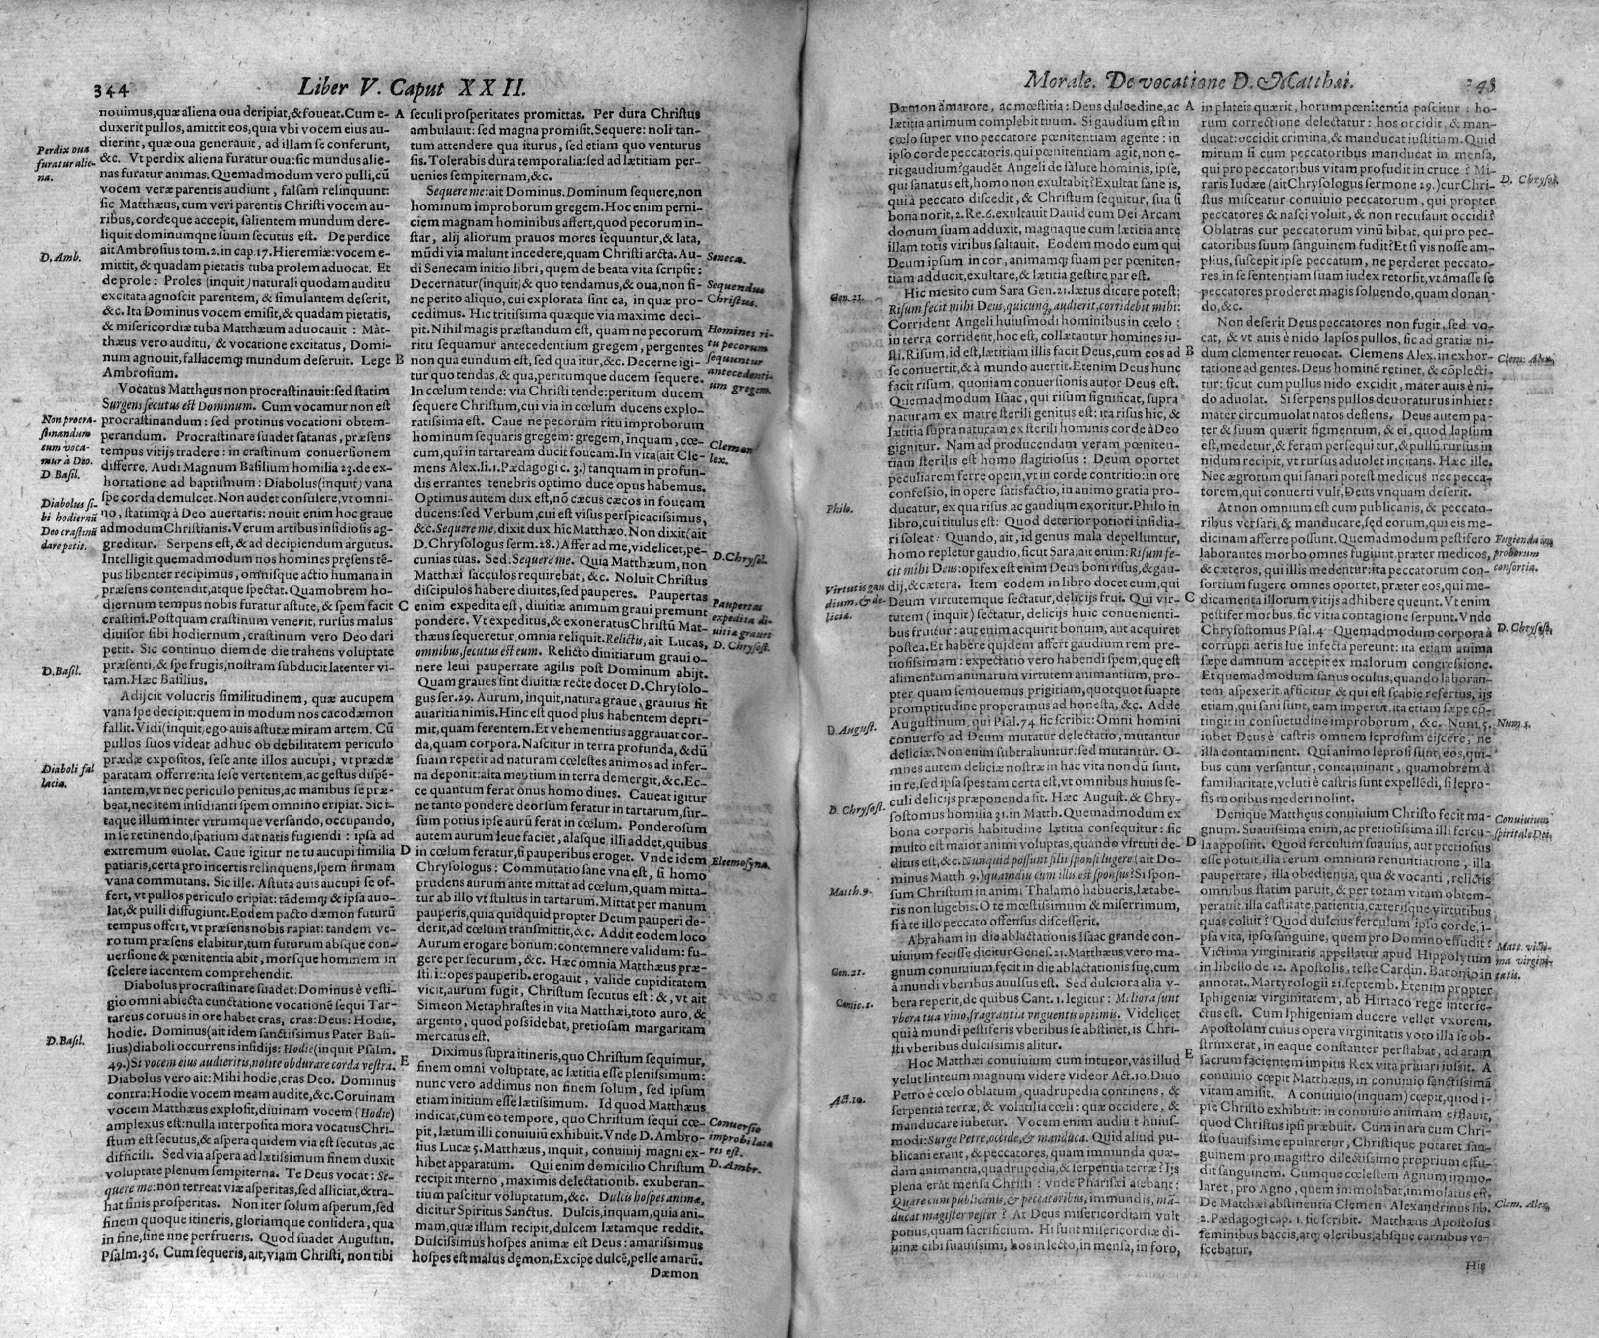 344
Liber V. Caput XXII.
nouimus, quæ aliena oua deripiat, & foueat. Cum e-
duxerit pullos, amittit eos, quia vbi vocem eius au-
dierint, quæ oua generauit, ad illam se conferunt,
&c. Vt perdix aliena furatur oua: sic mundus alie-
nas furatur animas. Quemadmodum vero pulli, cũ
vocem veræ parentis audiunt, falsam relinquunt:
sic Matthæus, cum veri parentis Christi vocem au-
ribus, cordeque accepit, salientem mundum dere-
liquit dominumque suum secutus est. De perdice
ait Ambrosius tom. 2. in cap. 17. Hieremiæ: vocem e-
mittit, & quadam pietatis tuba prolem aduocat. Et
de prole: Proles (inquit) naturali quodam auditu
excitata agnoscit parentem, & simulantem deserit,
&c. Ita Dominus vocem emisit, & quadam pietatis,
& misericordiæ tuba Matthæum aduocauit: Mat-
thæus vero auditu, & vocatione excitatus, Domi-
num agnouit, fallacemq; mundum deseruit. Lege
Ambrosium.
Vocatus Matthęus non procrastinauit: sed statim
Surgens secutus est Dominum. Cum vocamur non est
procrastinandum: sed protinus vocationi obtem-
perandum. Procrastinare suadet satanas, præsens
tempus vitijs tradere: in crastinum conuersionem
differre. Audi Magnum Basilium homilia 23. de ex-
hortatione ad baptismum: Diabolus (inquit) vana
spe corda demulcet. Non audet consulere, vt omni-
no, statimq; à Deo auertaris: nouit enim hoc graue
admodum Christianis. Verum artibus insidiosis ag-
greditur. Serpens est, & ad decipiendum argutus.
Intelligit quemadmodum nos homines pręsens tẽ-
pus libenter recipimus, omnisque actio humana in
præsens contendit, atque spectat. Quamobrem ho-
diernum tempus nobis furatur astute, & spem facit
crastini. Postquam crastinum venerit, rursus malus
diuisor sibi hodiernum, crastinum vero Deo dari
petit. Sic continuo diem de die trahens voluptate
præsenti, & spe frugis, nostram subducit latenter vi-
tam. Hæc Basilius.
Adijcit volucris similitudinem, quæ aucupem
vana spe decipit: quem in modum nos cacodæmon
fallit. Vidi (inquit) ego auis astutæ miram artem. Cũ
pullos suos videat adhuc ob debilitatem periculo
prædæ expositos, sese ante illos aucupi, vt prædæ
paratam offerre: ita sese vertentem, ac gestus dispẽ-
santem, vt nec periculo penitus, ac manibus se præ-
beat, nec item insidianti spem omnino eripiat. Sic i-
taque illum inter vtrumque versando, occupando,
in se retinendo, spatium dat natis fugiendi: ipsa ad
extremum euolat. Caue igitur ne tu aucupi similia
patiaris, certa pro incertis relinquens, spem firmam
vana commutans. Sic ille. Astuta auis aucupi se of-
fert, vt pullos periculo eripiat: tãdemq; & ipsa auo-
lat, & pulli diffugiunt. Eodem pacto dæmon futurũ
tempus offert, vt præsens nobis rapiat: tandem ve-
ro tum præsens elabitur, tum futurum absque con-
uersione & pœnitentia abit, morsque hominem in
scelere iacentem comprehendit.
Diabolus procrastinare suadet: Dominus è vesti-
gio omni abiecta cunctatione vocationẽ sequi Tar-
tareus coruus in ore habet cras, cras: Deus: Hodie,
hodie. Dominus (ait idem sanctissimus Pater Basi-
lius) diaboli occurrens insidijs: Hodie (inquit Psalm.
49.) Si vocem eius audieritis, nolite obdurare corda vestra.
Diabolus vero ait: Mihi hodie, cras Deo. Dominus
contra: Hodie vocem meam audite, &c. Coruinam
vocem Matthæus explosit, diuinam vocem (Hodie)
amplexus est: nulla interposita mora vocatus Chri-
stum est secutus, & aspera quidem via est secutus, ac
difficili. Sed via aspera ad lætissimum finem duxit
voluptate plenum sempiterna. Te Deus vocat: Se-
quere me: non terreat viæ asperitas, sed alliciat, & tra-
hat finis prosperitas. Non iter solum asperum, sed
finem quoque itineris, gloriamque considera, qua
in fine, sine fine perfrueris. Quod suadet Augustin.
Psalm. 36. Cum sequeris, ait, viam Christi, non tibi
Perdix oua
furatur alie-
na.
D. Amb.
Non procra-
stinandum
cum voca-
mur à Deo.
D. Basil.
Diabolus si-
bi hodiernũ
Deo crastinũ
dare petit.
D. Basil.
Diaboli fal
lacia.
D. Basil.
A
B
C
D
E
seculi prosperitates promittas. Per dura Christus
ambulauit: sed magna promisit. Sequere: noli tan-
tum attendere qua iturus, sed etiam quo venturus
sis. Tolerabis dura temporalia: sed ad lætitiam per-
uenies sempiternam, &c.
Sequere me: ait Dominus. Dominum sequere, non
hominum improborum gregem. Hoc enim perni-
ciem magnam hominibus affert, quod pecorum in-
star, alij aliorum prauos mores sequuntur, & lata,
mũdi via malunt incedere, quam Christi arcta. Au-
di Senecam initio libri, quem de beata vita scripsit:
Decernatur (inquit) & quo tendamus, & oua, non si-
ne perito aliquo, cui explorata sint ea, in quæ pro-
cedimus. Hic tritissima quæque via maxime deci-
pit. Nihil magis præstandum est, quam ne pecorum
ritu sequamur antecedentium gregem, pergentes
non qua eundum est, sed qua itur, &c. Decerne igi-
tur quo tendas, & qua, peritumque ducem sequere.
In cœlum tende: via Christi tende: peritum ducem
sequere Christum, cui via in cœlum ducens explo-
ratissima est. Caue ne pecorum ritu improborum
hominum sequaris gregem: gregem, inquam, cœ-
cum, qui in tartaream ducit foueam. In vita (ait Cle-
mens Alex. li. 1. Pædagogi c. 3.) tanquam in profun-
dis errantes tenebris optimo duce opus habemus.
Optimus autem dux est, nõ cæcus cæcos in foueam
ducens: sed Verbum, cui est visus perspicacissimus,
&c. Sequere me, dixit dux hic Matthæo. Non dixit (ait
D. Chrysologus serm. 28.) Affer ad me, videlicet, pe-
cunias tuas. Sed. Sequere me. Quia Matthæum, non
Matthæi sacculos requirebat, &c. Noluit Christus
discipulos habere diuites, sed pauperes. Paupertas
enim expedita est, diuitiæ animum graui premunt
pondere. Vt expeditus, & exoneratus Christũ Mat-
thæus sequeretur, omnia reliquit. Relictis, ait Lucas,
omnibus, secutus est eum. Relicto diuitiarum graui o-
nere leui paupertate agilis post Dominum abijt.
Quam graues sint diuitiæ recte docet D. Chrysolo-
gus ser. 29. Aurum, inquit, natura graue, grauius fit
auaritia nimis. Hinc est quod plus habentem depri-
mit, quam ferentem. Et vehementius aggrauat cor-
da, quam corpora. Nascitur in terra profunda, & dũ
suam repetit ad naturam cœlestes animos ad infer-
na deponit: alta mentium in terra demergit, &c. Ec-
ce quantum ferat onus homo diues. Caueat igitur
ne tanto pondere deorsum feratur in tartarum, sur-
sum potius ipse aurũ ferat in cœlum. Ponderosum
autem aurum leue faciet, alasque illi addet, quibus
in cœlum feratur, si pauperibus eroget. Vnde idem
Chrysologus: Commutatio sane vna est, si homo
prudens aurum ante mittat ad cœlum, quam mitta-
tur ab illo vt stultus in tartarum. Mittat per manum
pauperis, quia quidquid propter Deum pauperi de-
derit, ad cœlum transmittit, &c. Addit eodem loco
Aurum erogare bonum: contemnere validum: fu-
gere per securum, &c. Hæc omnia Matthæus præ-
sti. i.: opes pauperib. erogauit, valide cupiditatem
vicit, aurum fugit, Christum secutus est: &, vt ait
Simeon Metaphrastes in vita Matthæi, toto auro, &
argento, quod possidebat, pretiosam margaritam
mercatus est.
Diximus supra itineris, quo Christum sequimur,
finem omni voluptate, ac lætitia esse plenissimum:
nunc vero addimus non finem solum, sed ipsum
etiam initium esse lætissimum. Id quod Matthæus
indicat, cum eo tempore, quo Christum sequi cœ-
pit, lætum illi conuiuiũ exhibuit. Vnde D. Ambro-
sius Lucæ 5. Matthæus, inquit, conuiuij magni ex-
hibet apparatum. Qui enim domicilio Christum
recipit interno, maximis delectationib. exuberan-
tium pascitur voluptatum, &c. Dulcis hospes animæ,
dicitur Spiritus Sanctus. Dulcis, inquam, quia ani-
mam, quæ illum recipit, dulcem lætamque reddit.
Dulcissimus hospes animæ est Deus: amarissimus
hospes est malus dęmon. Excipe dulcẽ, pelle amarũ.
Dæmon
Seneca.
Sequendus
Christus.
Homines ri-
tu pecorum
sequuntur
antecedenti-
um gregem.
D. Chrysol.
Paupertas
expedita di-
uitiæ graues
D. Chrysost.
Eleemosyna.
Conuersio
improbi læta
res est.
D. Ambr.
Morale. De vocatione D. Matthæi.
Dæmon amarore, ac mœstitia: Deus dulcedine, ac
lætitia animum complebit tuum. Si gaudium est in
cœlo super vno peccatore pœnitentiam agente: in
ipso corde peccatoris, qui pœnitentiam agit, non e-
rit gaudium? gaudẽt Angeli de salute hominis, ipse,
qui sanatus est, homo non exultabit? Exultat sane is,
qui à peccato discedit, & Christum sequitur, sua si
bona norit, 2. Re. 6. exultauit Dauid cum Dei Arcam
domum suam adduxit, magnaque cum lætitia ante
illam totis viribus saltauit. Eodem modo eum qui
Deum ipsum in cor, animamq; suam per pœniten-
tiam adducit, exultare, & lætitia gestire par est.
Hic merito cum Sara Gen. 21. lætus dicere potest:
Risum fecit mihi Deus, quicunq; audierit, corridebit mihi:
Corrident Angeli huiusmodi hominibus in cœlo:
in terra corrident, hoc est, collætantur homines iu-
sti. Risum, id est, lætitiam illis facit Deus, cum eos ad
se conuertit, & à mundo auertit. Etenim Deus hunc
facit risum, quoniam conuersionis autor Deus est.
Quemadmodum Isaac, qui risum significat, supra
naturam ex matre sterili genitus est: ita risus hic, &
lætitia supra naturam, ex sterili hominis corde à Deo
gignitur. Nam ad producendam veram pœniten-
tiam sterilis est homo flagitiosus: Deum oportet
peculiarem ferre opem, vt in corde contritio: in ore
confessio, in opere satisfactio, in animo gratia pro-
ducatur, ex qua risus ac gaudium exoritur. Philo in
libro, cui titulus est: Quod deterior potiori insidia-
ri soleat: Quando, ait, id genus mala depelluntur,
homo repletur gaudio, sicut Sara, ait enim: Risum fe-
cit mihi Deus: opifex est enim Deus boni risus, & gau-
dij, & cætera. Item eodem in libro docet eum, qui
Deum virtutemque sectatur, delicijs frui. Qui vir-
tutem (inquit) sectatur, delicijs huic conuenienti-
bus fruitur: aut enim acquirit bonum, aut acquiret
postea. Et habere quidem affert gaudium rem pre-
tiosissimam: expectatio vero habendi spem, quę est
alimentum animarum virtutem amantium, pro-
pter quam semouemus pigritiam, quotquot suapte
promptitudine properamus ad honesta, &c. Adde
Augustinum, qui Psal. 74. sic scribit: Omni homini
conuerso ad Deum mutatur delectatio, mutantur
deliciæ. Non enim subtrahuntur: sed mutantur. O-
mnes autem deliciæ nostræ in hac vita nondũ sunt,
in re, sed ipsa spes tam certa est, vt omnibus huius se-
culi delicijs præponenda sit. Hæc August. & Chry-
sostomus homilia 31. in Matth. Quemadmodum ex
bona corporis habitudine lætitia consequitur: sic
multo est maior animi voluptas, quando virtuti de-
ditus est, &c. Nunquid possunt filii sponsi lugere (ait Do-
minus Matth 9.) quamdiu cum illis est sponsus? Si spon-
sum Christum in animi Thalamo habueris, lætabe-
ris non lugebis. O te mœstissimum & miserrimum,
si à te illo peccato offensus discesserit.
Abraham in die ablactationis Isaac grande con-
uiuium fecisse dicitur Genes. 21. Matthæus vero ma-
gnum conuiuium fęcit in die ablactationis suę, cum
à mundi vberibus auulsus est. Sed dulciora alia v-
bera reperit, de quibus Cant. 1. legitur: Meliora sunt
vbera tua vino, fragrantia vnguentis optimis. Videlicet
qui à mundi pestiferis vberibus se abstinet, is Chri-
sti vberibus dulcissimis alitur.
Hoc Matthæi conuiuium cum intueor, vas illud
velut linteum magnum videre videor Act. 10. Diuo
Petro è cœlo oblatum, quadrupedia continens, &
serpentia terræ, & volatilia cœli: quæ occidere, &
manducare iubetur. Vocem enim audiut huius-
modi: Surge Petre, occide, & manduca. Quid aliud pu-
blicani erant, & peccatores, quam immunda quæ-
dam animantia, quadrupedia, & serpentia terræ? Ijs
plena erãt mensa Christi: vnde Pharisæi aiebant:
Quare cum publicanis, & peccatoribus, immundis, mã-
ducat magister vester? At Deus misericordiam vult
potius, quam sacrificium. Hi sunt misericordiæ di-
uinæ cibi suauissimi, hos in lecto, in mensa, in foro,
Gen. 21.
Philo.
Virtutis gau
dium, & de-
licia.
D. August.
D. Chrysost.
Matth. 9.
Gen. 21.
Cantic. 1.
Act. 10.
A
B
C
D
E
in plateis quærit, horum pœnitentia pascitur: ho-
rum correctione delectatur: hos occidit, & man-
ducat: occidit crimina, & manducat iustitiam. Quid
mirum si cum peccatoribus manducat in mensa,
qui pro peccatoribus vitam profudit in cruce? Mi-
raris Iudæe (ait Chrysologus sermone 29.) cur Chri-
stus misceatur conuiuio peccatorum, qui propter
peccatores & nasci voluit, & non recusauit occidi?
Oblatras cur peccatorum vinũ bibat, qui pro pec-
catoribus suum sanguinem fudit? Et si vis nosse am-
plius, suscepit ipse peccatum, ne perderet peccato-
res, in se sententiam suam iudex retorsit, vt amasse se
peccatores proderet magis soluendo, quam donan-
do, &c.
Non deserit Deus peccatores non fugit, sed vo-
cat, & vt auis è nido lapsos pullos, sic ad gratiæ ni-
dum clementer reuocat. Clemens Alex. in exhor-
tatione ad gentes. Deus hominẽ retinet, & cõplecti-
tur: sicut cum pullus nido excidit, mater auis è ni-
do aduolat. Si serpens pullos deuoraturus inhiet:
mater circumuolat natos deflens. Deus autem pa-
ter & suum quærit figmentum, & ei, quod lapsum
est, medetur, & feram persequitur, & pullũ rursus in
nidum recipit, vt rursus aduolet incitans. Hæc ille.
Nec ægrotum qui sanari potest medicus nec pecca-
torem, qui conuerti vult, Deus vnquam deserit.
At non omnium est cum publicanis, & peccato-
ribus versari, & manducare, sed eorum, qui eis me-
dicinam afferre possunt. Quemadmodum pestifero
laborantes morbo omnes fugiunt, præter medicos,
& cæteros, qui illis medentur: ita peccatorum con-
sortium fugere omnes oportet, præter eos, qui me-
dicamenta illorum vitijs adhibere queunt. Vt enim
pestifer morbus, sic vitia contagione serpunt. Vnde
Chrysostomus Psal. 4. Quemadmodum corpora à
corrupti aeris lue infecta pereunt: ita etiam anima
sæpe damnum accepit ex malorum congressione.
Et quemadmodum sanus oculus, quando laboran-
tem aspexerit afficitur & qui est scabie refertus, ijs
etiam, qui sani sunt, eam impertit, ita etiam sæpe cõ-
tingit in consuetudine improborum, &c. Num. 5.
iubet Deus è castris omnem leprosum eijcere, ne
illa contaminent. Qui animo leprosi sunt, eos, qui-
bus cum versantur, contaminant, quamobrem à
familiaritate, veluti è castris sunt expellẽdi, si lepro-
sis moribus mederi nolint.
Denique Matthęus conuiuium Christo fecit ma-
gnum. Suauissima enim, ac pretiosissima illi fercu-
la apposuit. Quod ferculum suauius, aut pretiosius
esse potuit, illa rerum omnium renuntiatione, illa
paupertate, illa obedientia, qua & vocanti, relictis
omnibus statim paruit, & per totam vitam obtem-
perauit. illa castitate, patientia, cæterisque virtutibus
quas coluit? Quod dulcius ferculum ipso corde, i-
psa vita, ipso sanguine, quem pro Domino effudit?
Victima virginitatis appellatur apud Hippolytum
in libello de 12. Apostolis, teste Cardin. Baronio in
annotat. Martyrologii 21. septemb. Etenim propter
Iphigeniæ virginitatem, ab Hirtaco rege interfe-
ctus est. Cum Iphigeniam ducere vellet vxorem,
Apostolum cuius opera virginitatis voto illa se ob-
strinxerat, in eaque constanter perstabat, ad aram
sacrum facientem impius Rex vita priuari iussit. A
conuiuio cœpit Matthæus, in conuiuio sanctissimã
vitam amisit. A conuiuio (inquam) cœpit, quod i-
pse Christo exhibuit: in conuiuio animam efflauit,
quod Christus ipsi præbuit. Cum in ara cum Chri-
sto suauissime epularetur, Christique potaret san-
guinem pro magistro dilectissimo proprium effu-
dit sanguinem. Cumque cœlestem Agnum immo-
laret, pro Agno, quem immolabat, immolatus est.
De Matthæi abstinentia Clemen Alexandrinus lib.
2. Pædagogi cap. 1. sic scribit. Matthæus Apostolus
seminibus baccis, atq; oleribus, absque carnibus ve-
scebatur,
His
D. Chrysol.
Clem. Alex.
Fugienda im
proborum
consortia.
D. Chrysost.
Num. 5.
Conuiuium
spirituale Dei
Matt. victi-
ma virgini-
tatis.
Clem. Alex.